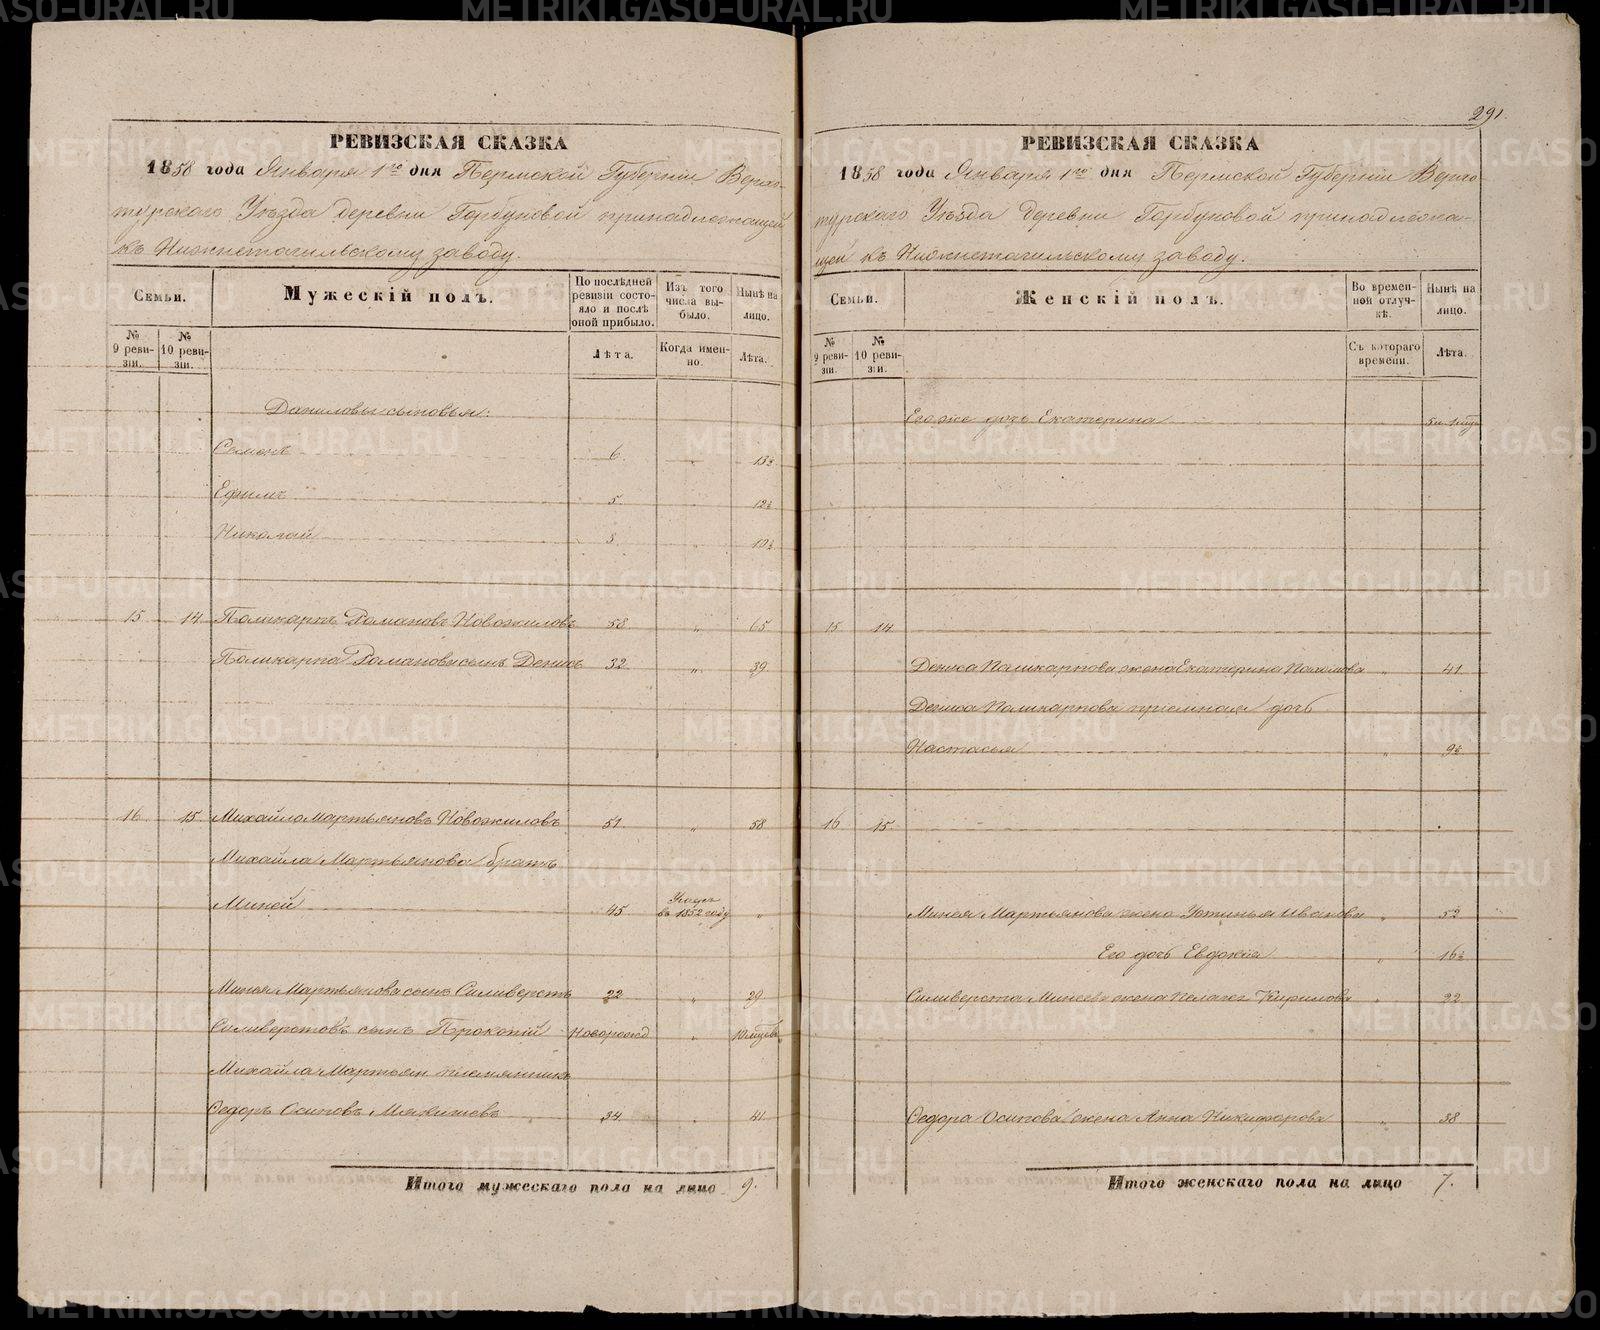 291.
РЕВИЗСКАЯ СКАЗКА
1858 года Января 1го дня Пермской Губерніи Верхо-
турскаго Уѣзда деревни Горбуновой принадлежащей
къ Нижнетагильскому заводу.
Семьи.
Мужескій полъ.
По послѣдней ревизіи состояло и послѣ оной прибыло.
Изъ того числа выбыло.
Нынѣ на лицо.
№ 9 ревизіи.
№ 10 ревизіи.
Лѣта.
Когда именно.
Лѣта.
Даниловы сыновья:
Семенъ 6. 13½
Ефимъ 5. 12½
Николай 3. 10½
15 14. Поликарпъ Романовъ Новожиловъ 58 „ 65
Поликарпа Романова сынъ Денисъ 32. „ 39
16 15. Михайло Мартьяновъ Новожиловъ 51. „ 58
Михайла Мартьянова братъ
Миней 45 въ 1852 году „
Минея Мартьянова сынъ Силиверстъ 22 „ 29
Силиверстовъ сынъ Прокопій Новорожд „ 10 мцовъ
Михайла Мартьян племянникъ
Федоръ Осиповъ Мякишевъ 34. „ 41.
Итого мужескаго пола на лицо 9.
РЕВИЗСКАЯ СКАЗКА
1858 года Января 1го дня Пермской Губерніи Верхо-
турскаго Уѣзда деревни Горбуновой принадлежа-
щей къ Нижнетагильскому заводу.
Семьи.
Женскій полъ.
Во временной отлучкѣ.
Нынѣ на лицо.
№ 9 ревизіи.
№ 10 ревизіи.
Съ котораго времени.
Лѣта.
Его же дочь Екатерина
15 14.
Дениса Поликарпова жена Екатерина Пахомова „ 41
Дениса Поликарпова пріемная дочь
Настасья „ 9½
16 15.
Минея Мартьянова жена Устинья Иванова „ 52
Его дочь Евдокія „ 16½
Силиверста Минеева жена Пелагея Кирилова „ 22
Федора Осипова жена Анна Никифорова „ 38
Итого женскаго пола на лицо 7.
METRIKI.GASO-URAL.RU